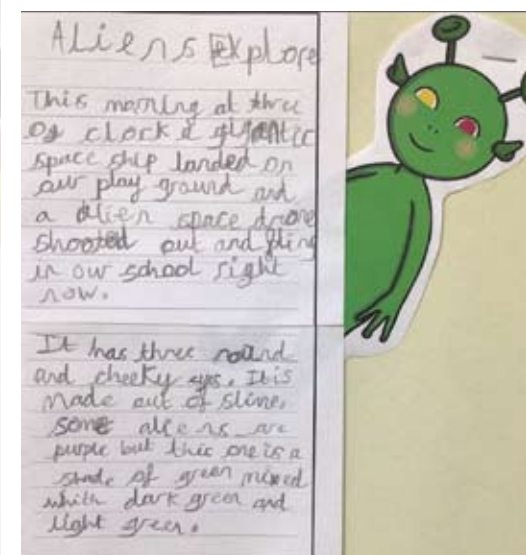 Aliens Explore
This morning at three
og clock a gigantic
space ship landed on
our play ground and
a alien space drone
shooted out and fling
in our school right
now.
It has three round
and cheeky eys. It is
made out of slime.
some aliens are
purple but this one is a
shade of green mixed
whith dark green and
light green.